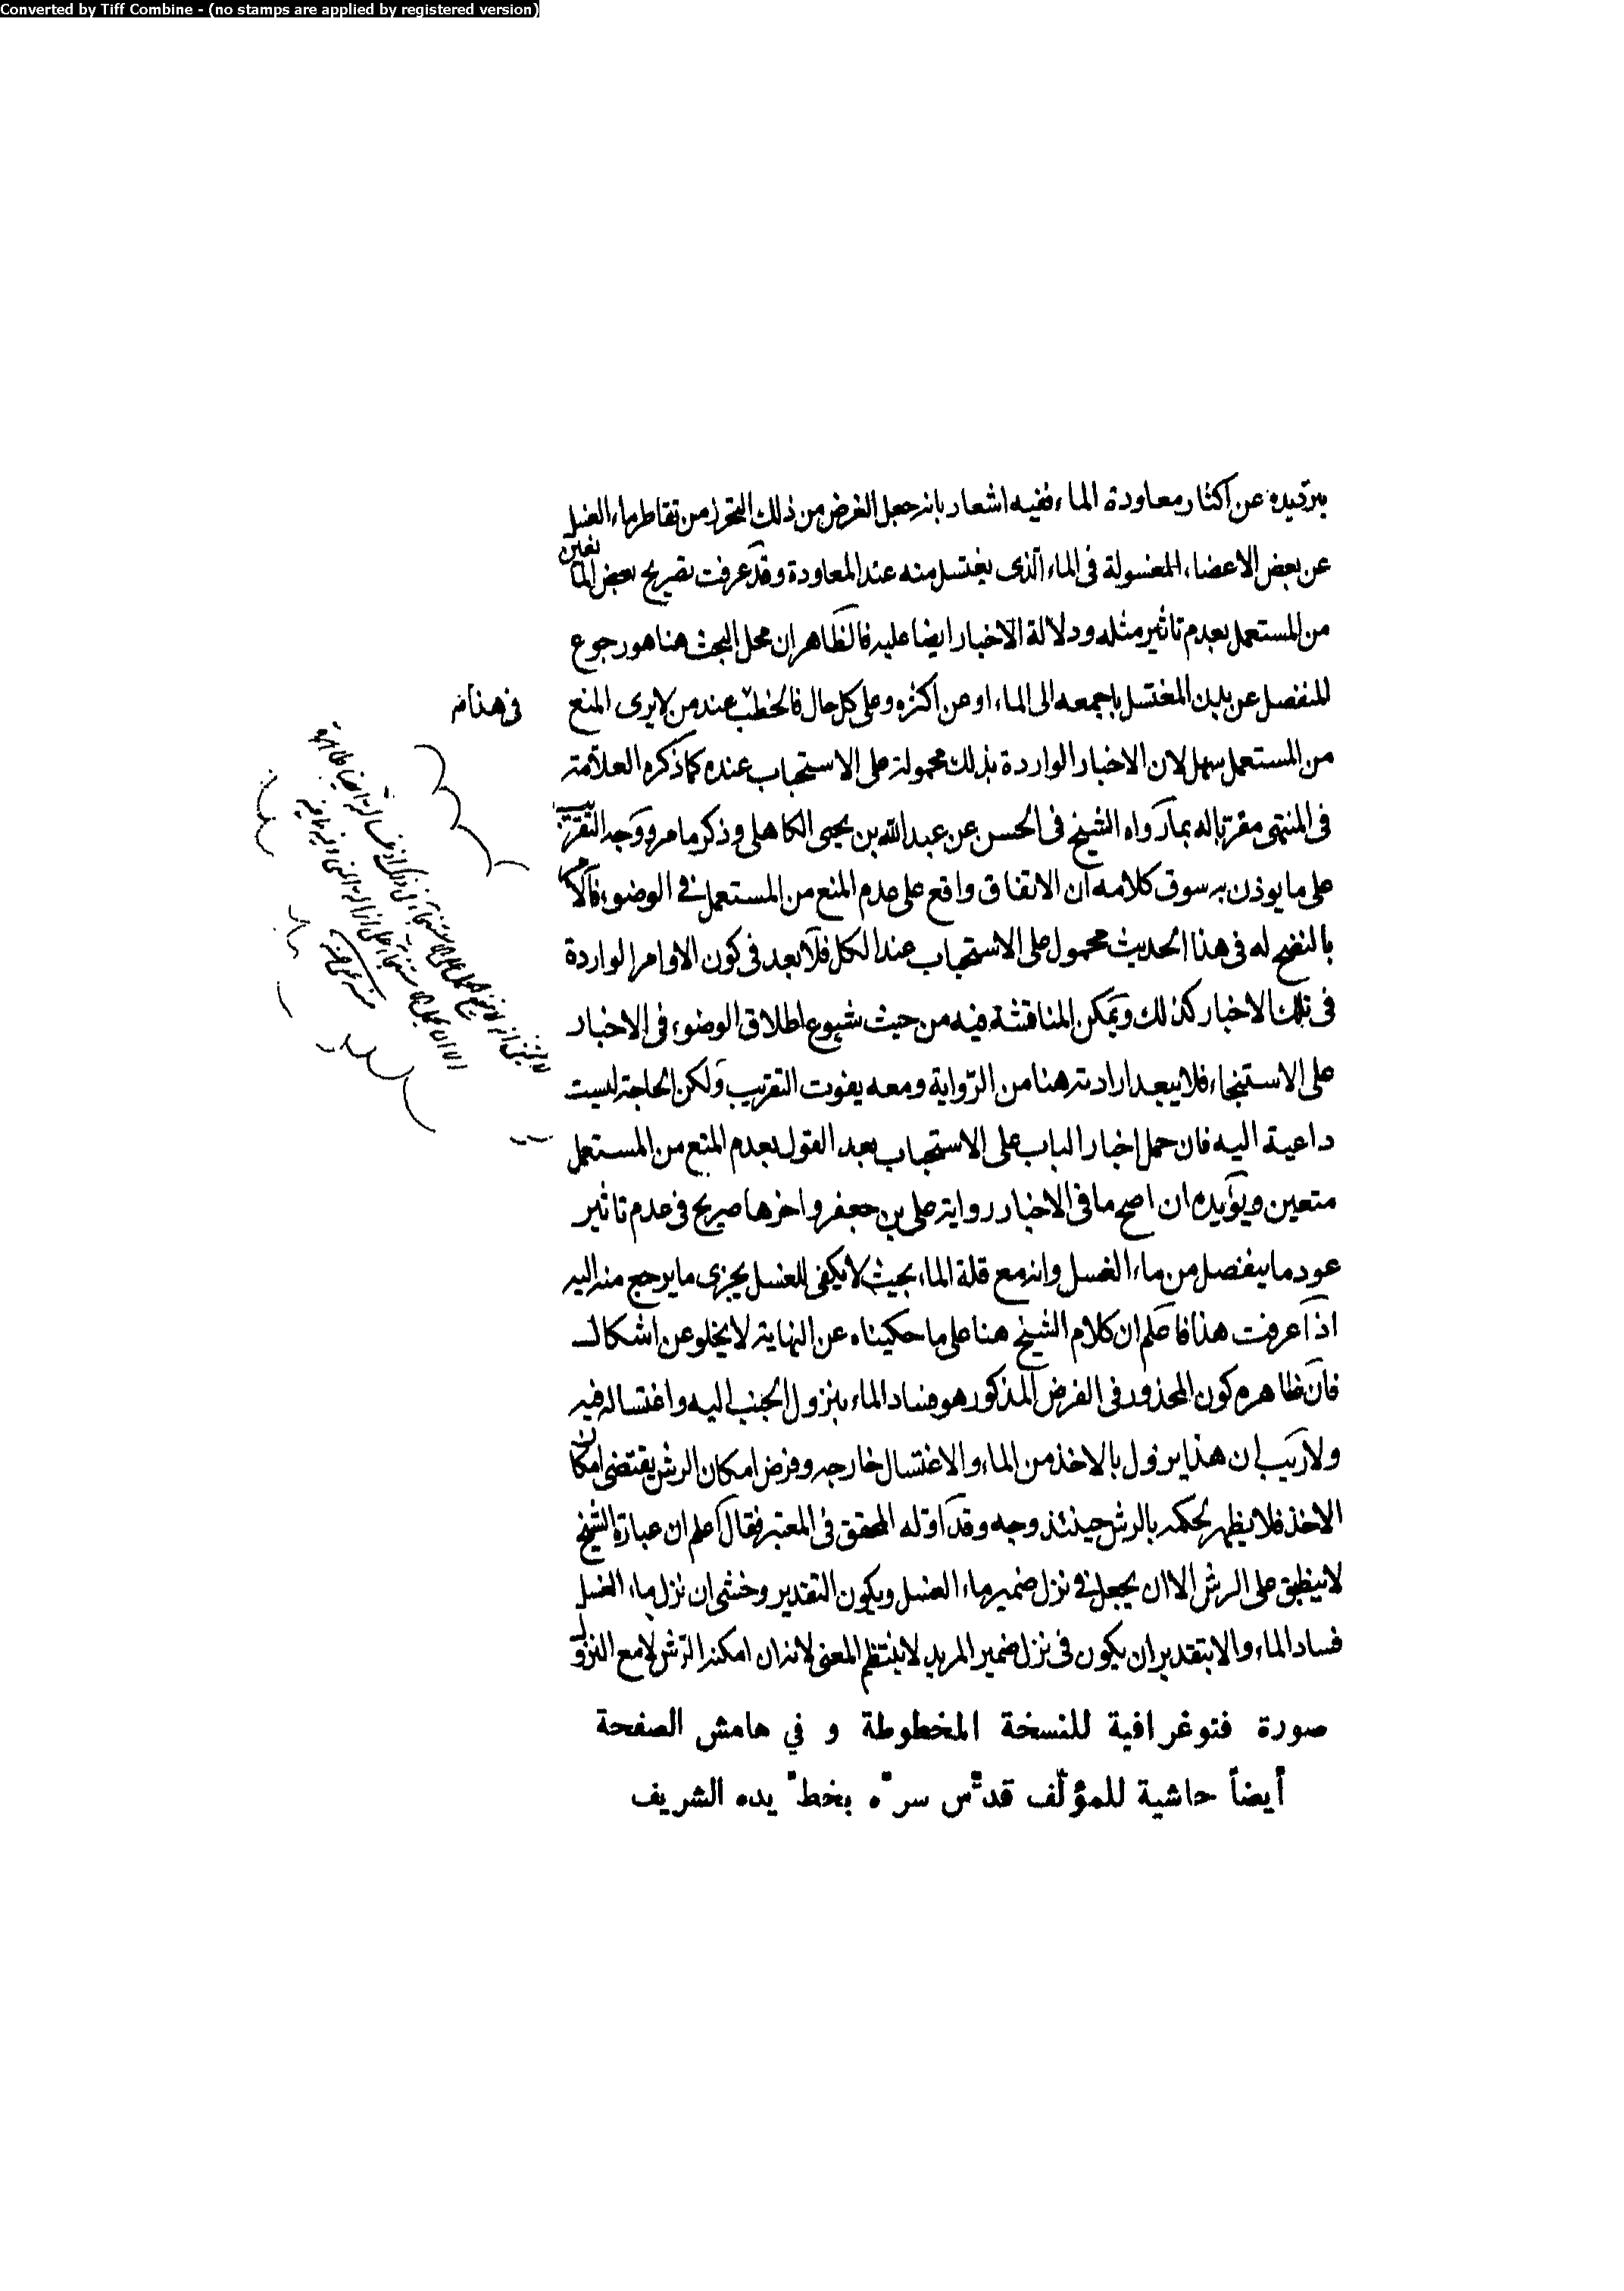 Converted by Tiff Combine - (no stamps are applied by registered version)
بترديده عن اكثار معاودة الماء ففيه اشعار بانه جعل الغرض من ذلك التحرز من تقاطر ماء الغسل
عن بعض الاعضاء المغسولة فى الماء الذى يغتسل منه عند المعاودة وقد عرفت تصريح بعض المانعين
من المستعمل بعدم تاثير مثله ودلالة الاخبار ايضا عليه فالظاهر ان محل البحث هنا هو رجوع
المنفصل عن بدن المغتسل باجمعه الى الماء او عن اكثره وعلى كل حال فالخطب عند من لا يرى المنع
من المستعمل سهل لان الاخبار الواردة بذلك محمولة على الاستحباب عنده كما ذكره العلامة
فى المنتهى مقربا له بما رواه الشيخ فى الحسن عن عبد الله بن يحيى الكاهلى وذكر ما مر ووجه التقريب
على ما يوذن به سوق كلامه ان الاتفاق واقع على عدم المنع من المستعمل فى الوضوء فالامر
بالنضح له فى هذا الحديث محمول على الاستحباب عند الكل فلا بعد فى كون الاوامر الواردة
فى تلك الاخبار كذلك ويمكن المناقشة فيه من حيث شيوع اطلاق الوضوء فى الاخبار
على الاستنجاء فلا يبعد ارادته هنا من الرواية ومعه يفوت التقريب ولكن الحاجة ليست
داعية اليه فان حمل اخبار الباب على الاستحباب بعد القول بعدم المنع من المستعمل
متعين ويؤيده ان اصح ما فى الاخبار رواية على بن جعفر واخرها صريح فى عدم تاثير
عود ما ينفصل من ماء الغسل وانه مع قلة الماء بحيث لا يكفى للغسل يجزى ما يرجع منه اليه
اذا عرفت هذا فاعلم ان كلام الشيخ هنا على ما حكيناه عن النهاية لا يخلو عن اشكال
فان ظاهره كون المحذور فى الفرض المذكور هو فساد الماء بنزول الجنب اليه واغتساله فيه
ولا ريب ان هذا يزول بالاخذ من الماء والاغتسال خارجه وفرض امكان الرش يقتضى امكان
الاخذ فلا يظهر لحكمه بالرش حينئذ وجه وقد اوله المحقق فى المعتبر فقال اعلم ان عبارة الشيخ
لا ينطبق على الرش الا ان يجعل فى نزل ضمير ماء الغسل ويكون التقدير وخشى ان نزل ماء الغسل
فساد الماء والا بتقدير ان يكون فى نزل ضمير المريد لا ينتظم المعنى لانه ان امكنه الرش لا مع النزول
صورة فتوغرافية للنسخة المخطوطة و في هامش الصفحة
أيضاً حاشية للمؤلّف قدّس سرّه بخطّ يده الشريف